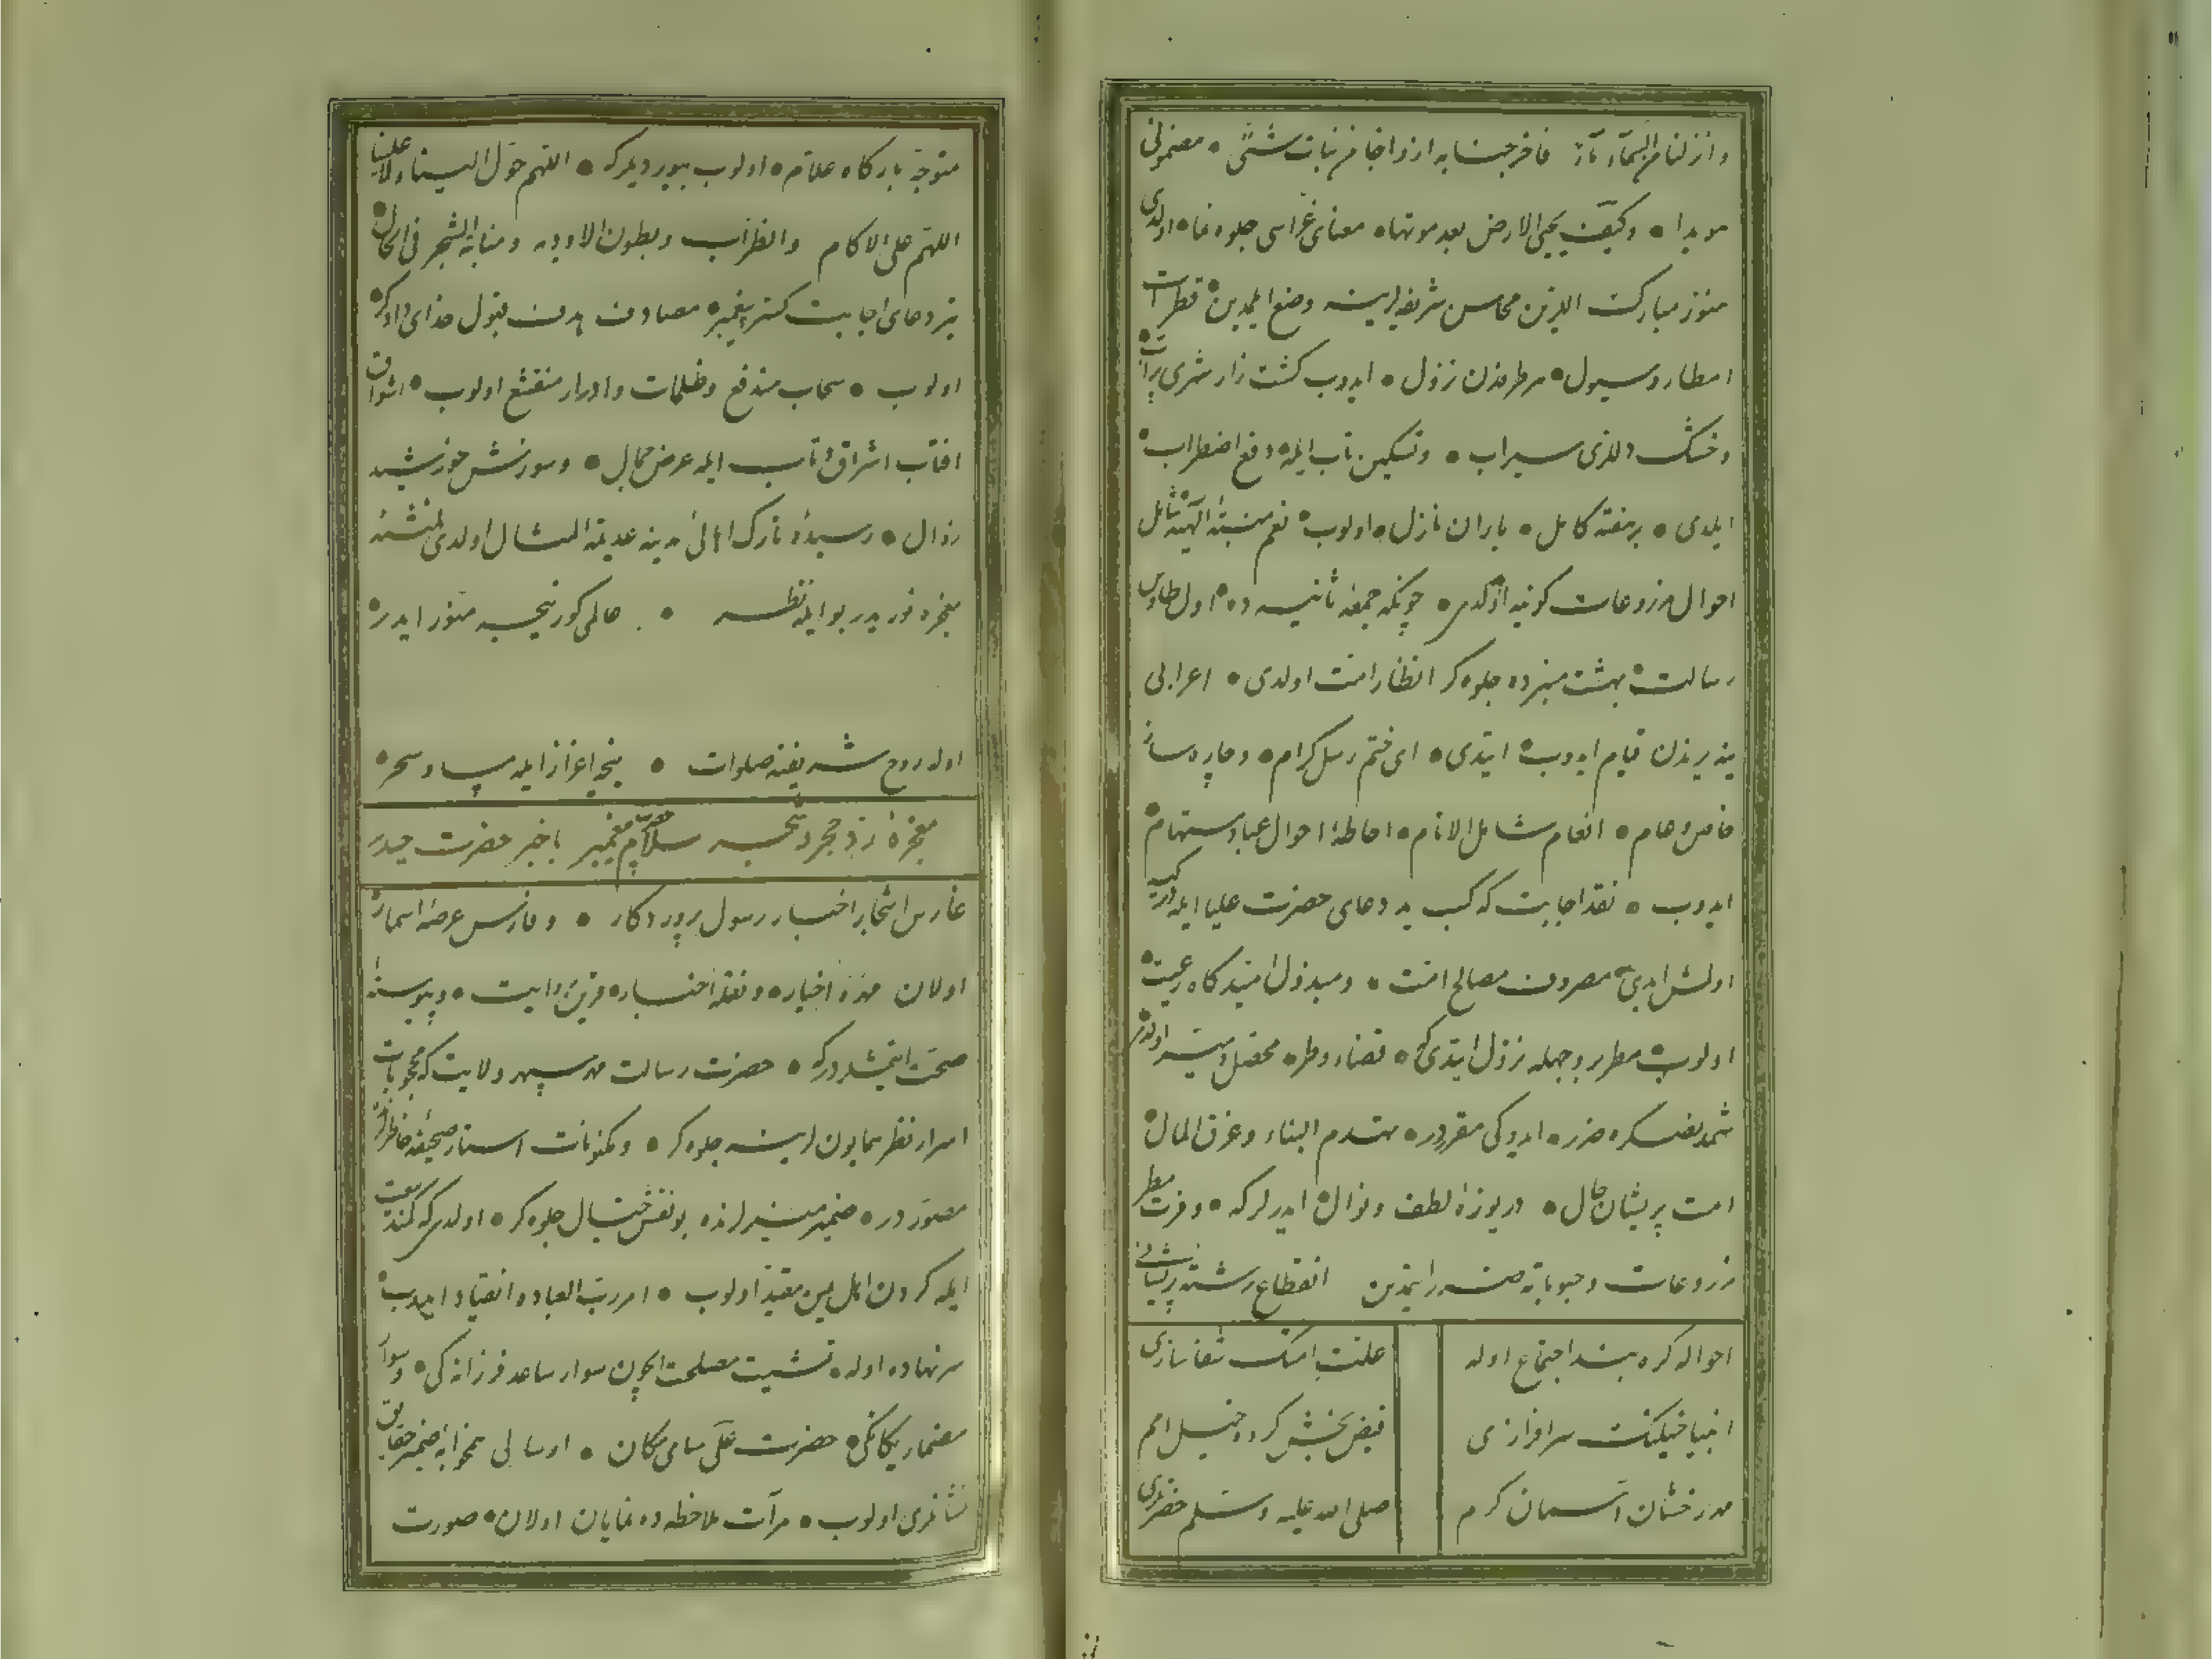 وانزلنا من السماء ماء فاخرجنا به ازواجا من نبات شتى • مضمونی
هویدا • وكيف يحيي الارض بعد موتها • معنای غراسی جلوه نما • اولدی
هنوز مبارك اللرین محاسن شریفه لرینه وضع ایلمدین • قطرات
امطار و سیول • هر طرفدن نزول • ایدوب کشت زار شهری
وخشك دللری سیراب • وتسکین تاب ایله دفع اضطراب •
ایلدی • بر هفته کامل • باران نازل • اولوب • نعم الهیه شامل
احوال مزروعات کونیه اولدی • چونکه جمعه ثانیه ده • اول طاوس
رسالت • بهشت منبرده جلوه کر انظار امت اولدی • اعرابی
ینه یرندن قیام ایدوب • ایتدی • ای ختم رسل کرام • وچاره ساز
خاص و عام • انعام شامل الانام • احاطه احوال عباد مستهام •
ایدوب • نقد اجابت که کیسه ید دعای حضرت علیا ایله
اولمش ایدی • مصروف مصالح امت • ومبذول امیدکاه رعیت •
اولوب • مطر بر وجهله نزول ایتدی که • قضاء وطره محصل و میسر اولدی
شمدنصکره ضرر • ایدوکی مقرردر • تهدم البناء وغرق المال •
امت پریشان حال • دریوزۀ لطف و نوال • ایدرلر که • وفرت مطر
مزروعات وحبوباته ضرر ایتمدین انقطاع رشته پریشانی
احواله کره بند اجتماع اوله علت امتك شفا سازی
انبیا خیلینك سرافرازی فیض بخش کروه خیل امم
مه رخشان آسمان کرم صلی الله علیه وسلم حضرتلری
متوجه بارگاه علام • اولوب بیوردیلر که • اللهم حوالينا ولا علينا
اللهم على الاكام والظراب وبطون الاودية ومنابت الشجر فی الحال •
تیر دعای اجابت کستر پیغمبر • مصادف هدف قبول خدای دادکر •
اولوب • سحاب مندفع وظلمات وادرار منقشع اولوب • اشواق
افتاب اشراق وتاب ایله عرض جمال • وسوزش خورشید
زوال • رسیده تارك اهالی مدینه عدیمة المثال اولدی
معجزه نوریدر بو ایله نظر • عالمی کور نیجه منور ایدر •
اوله روح شریفنه صلوات • نیجه اعزاز ایله مسا و سحر •
معجزۀ سلام پیغمبر با خبر حضرت حیدر
غارس اشجار اخبار رسول پرورد کار • وفارس عرصه اسمار •
اولان مهرۀ اخیار • ونقله اخبار • قرین روایت • وپیوسته
صحت ایتمشلردر که • حضرت رسالت مهر سپهر ولایت که محجوبات
اسرار نظر همایون لرینه جلوه کر • ومکنونات استار صحیفه خاطرلرنده
مصور در • ضمیر منیرلرنده بو نقش خیال جلوه کر • اولدی که کمند بیعت
ایله کردن اهل یمن مقید اولوب • امر رب العباده انقیاد ایدوب •
سر نهاده اوله • تمشیت مصلحت ایچون سوار ساعد فرزانه کی •
مضمار یکانکی • حضرت علی سامی مکان • ارسالی ضمیر حقایق
نشانلری اولوب • مرآت ملاحظه ده نمایان اولان • صورت